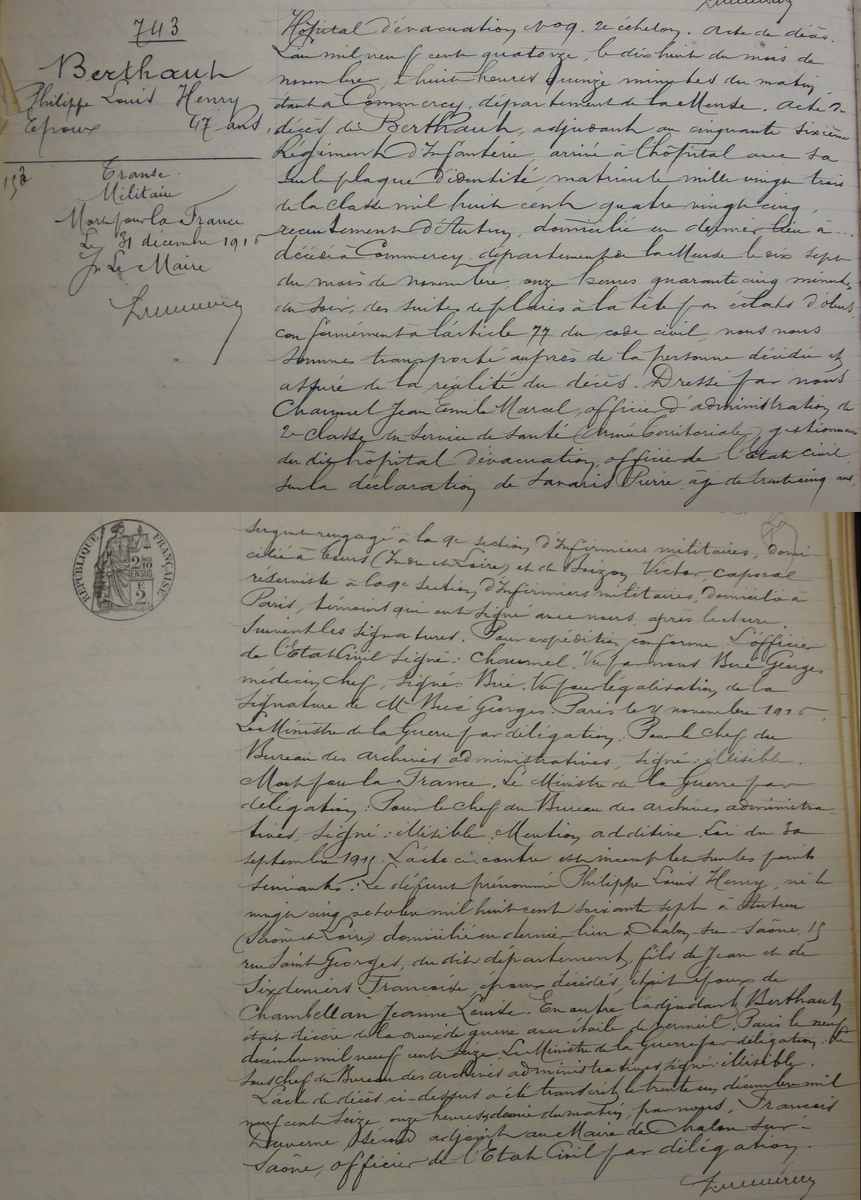 743
Berthault
Philippe Louis Henry
Epoux 47 ans
Transc.
Militaire
Mort pour la France
Le 31 décembre 1916
Le Maire
Hôpital d'évacuation No 9. 2e échelon. Acte de décès.
L'an mil neuf cent quatorze, le dix huit du mois de
novembre, à huit heures quinze minutes du matin
étant à Commercy, département de la Meuse. Acte de
décès de Berthault, adjudant au cinquante sixième
Régiment d'Infanterie, arrivé à l'hôpital avec sa
seule plaque d'identité, matricule mille vingt trois
de la classe mil huit cent quatre vingt cinq,
recrutement d'Autun, domicilié en dernier lieu à...
décédé à Commercy, département de la Meuse le dix sept
du mois de novembre, onze heures quarante cinq minutes
du soir, des suites de plaies à la tête par éclats d'obus
conformément à l'article 77 du code civil, nous nous
sommes transporté auprès de la personne décédée et
assuré de la réalité du décès. Dressé par nous
Jean Emile Marcel, officier d'administration de
2e classe du Service de Santé (Armée Territoriale), gestionnaire
du dit hôpital d'évacuation, officier de l'Etat Civil
sur la déclaration de Pierre, âgé de trente cinq ans,
RÉPUBLIQUE FRANÇAISE
sergent rengagé à la 9e section d'Infirmiers militaires, domi-
cilié à Tours (Indre et Loire) et de Victor, caporal
réserviste à la 9e section d'Infirmiers militaires, domicilié à
Paris, témoins qui ont signé avec nous après lecture.
Suivent les signatures. Pour expédition conforme. L'officier
de l'Etat Civil signé: Vu par nous Georges
médecin chef, signé: Vu pour légalisation de la
signature de Mr Georges. Paris le novembre 1916.
Le Ministre de la Guerre par délégation. Pour le chef du
Bureau des archives administratives, signé: illisible.
Mort pour la France. Le Ministre de la Guerre par
délégation: Pour le chef du Bureau des archives administra-
tives, signé: illisible. Mention additive. Loi du 30
septembre 1915. L'acte ci-contre est incomplet sur les points
suivants: Le défunt prénommé Philippe Louis Henry, né le
vingt cinq octobre mil huit cent soixante sept à Autun
(Saône et Loire) domicilié en dernier lieu à Chalon-sur-Saône, 15
rue Saint Georges, du dit département, fils de Jean et de
Sixdeniers Françoise, époux décédés, était époux de
Chambellan Jeanne Louise. En outre l'adjudant Berthault
était décoré de la croix de guerre avec étoile de vermeil. Paris le neuf
décembre mil neuf cent seize. Le Ministre de la Guerre par délégation. Le
sous chef du Bureau des archives administratives signé: illisible.
L'acte de décès ci-dessus a été transcrit le trente un décembre mil
neuf cent seize, onze heures et demie du matin, par nous, François
Duverne, second adjoint au Maire de Chalon sur-
Saône, officier de l'Etat Civil par délégation.